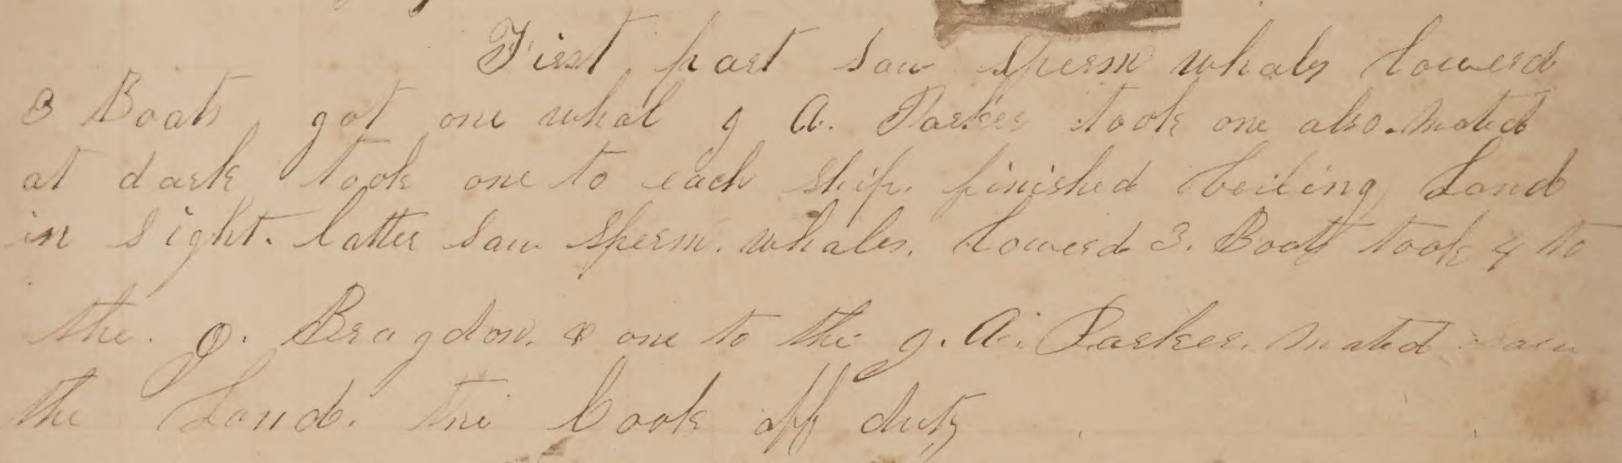 First part saw sperm whals lowerd
3 Boats got one whal J A. Parker took one also. mated
at dark took one to each ship. finished boiling Land
in sight. latter saw sperm. whales. lowerd 3. Boats took 4 to
the. J. Bragdon. & one to the J. A. Parker. mated saw
the Land. the Cook off duty